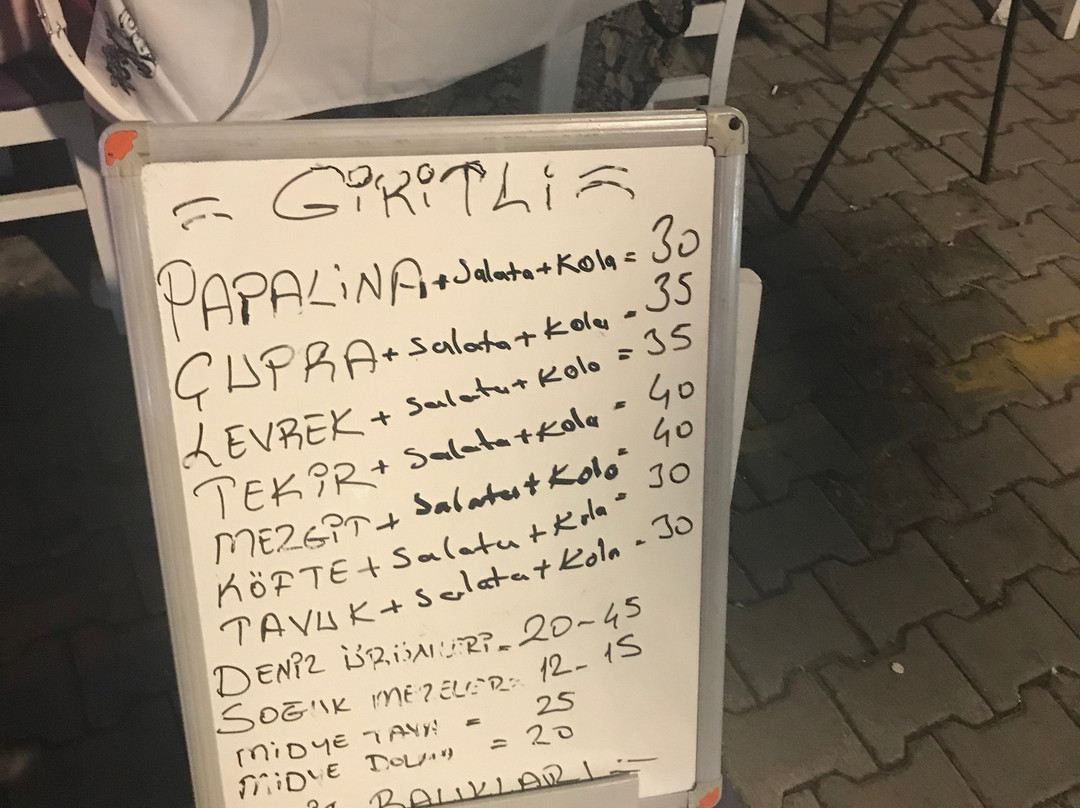 = GİRİTLİ =
PAPALİNA + Salata + Kola = 30
ÇUPRA + Salata + Kola = 35
LEVREK + Salata + Kola = 35
TEKİR + Salata + Kola = 40
MEZGİT + Salata + Kola = 40
KÖFTE + Salata + Kola = 30
TAVUK + Salata + Kola = 30
DENİZ ÜRÜNLERİ = 20-45
SOĞUK MEZELER = 12-15
MİDYE TAVA = 25
MİDYE DOLMA = 20
BALIKLARI =